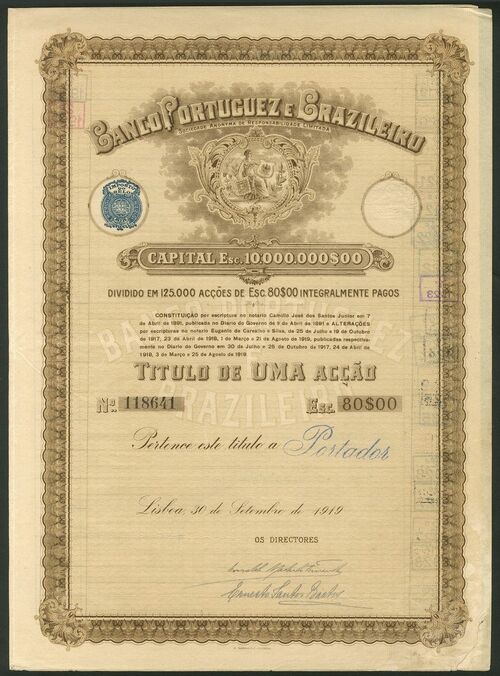 BANCO PORTUGUEZ E BRAZILEIRO
SOCIEDADE ANONYMA DE RESPONSABILIDADE LIMITADA
CAPITAL ESC. 10:000.000$00
DIVIDIDO EM 125.000 ACÇÕES DE ESC. 80$00 INTEGRALMENTE PAGOS
CONSTITUIÇÃO por escriptura no notario Camillo José dos Santos Junior em 7
de Abril de 1891, publicada no Diario do Governo de 9 de Abril de 1891 e ALTERAÇÕES
por escripturas no notario Eugenio de Carvalho e Silva, de 25 de Julho e 19 de Outubro
de 1917, 23 de Abril de 1918, 1 de Março e 21 de Agosto de 1919, publicadas respectiva-
mente no Diario do Governo em 30 de Julho e 25 de Outubro de 1917, 24 de Abril de
1918, 3 de Março e 25 de Agosto de 1919.
TITULO DE UMA ACÇÃO
Nº 118641 ESC. 80$00
Pertence este titulo a Portador
Lisboa, 30 de Setembro de 1919
OS DIRECTORES
Ernesto Santos Bastos
23